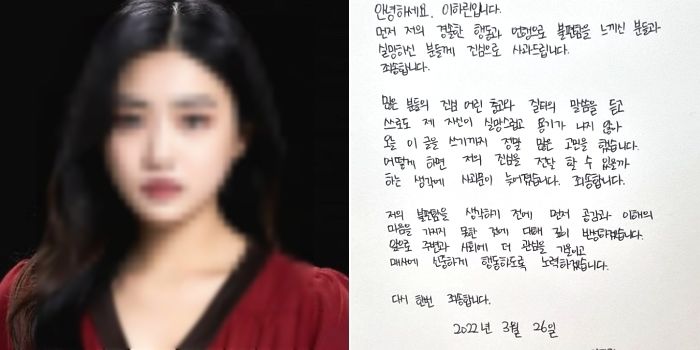 안녕하세요. 이하린입니다.
먼저 저의 경솔한 행동과 언행으로 불편함을 느끼신 분들과
실망하신 분들께 진심으로 사과드립니다.
죄송합니다.
많은 분들의 진심 어린 충고와 질타의 말씀을 듣고
스스로도 제 자신이 실망스럽고 용기가 나지 않아
오늘 이 글을 쓰기까지 정말 많은 고민을 했습니다.
어떻게 하면 저의 진심을 전달 할 수 있을까
하는 생각에 사과문이 늦어졌습니다. 죄송합니다.
저의 불편함을 생각하기 전에 먼저 공감과 이해의
마음을 가지지 못한 점에 대해 깊이 반성하겠습니다.
앞으로 주변과 사회에 더 관심을 기울이고
매사에 신중하게 행동하도록 노력하겠습니다.
다시 한번 죄송합니다.
2022년 3월 26일